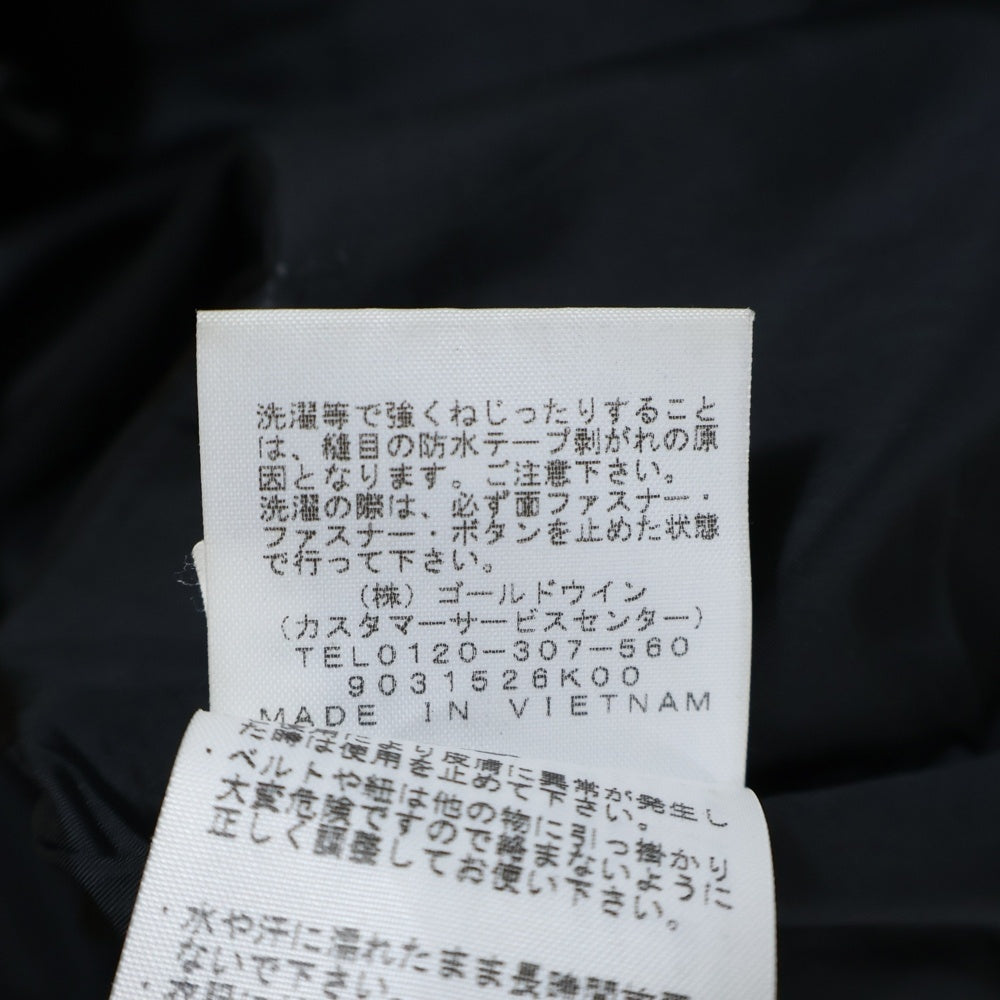 洗濯等で強くねじったりすること
は、縫目の防水テープ剥がれの原
因となります。ご注意下さい。
洗濯の際は、必ず面ファスナー・
ファスナー・ボタンを止めた状態
で行って下さい。
(株)ゴールドウイン
(カスタマーサービスセンター)
TEL0120-307-560
9031526K00
MADE IN VIETNAM
た時は使用を止めて下さい。
・ベルトや紐は他の物に引っ掛かり
大変危険ですので絡まないように
正しく調整してお使い下さい。
・水や汗に濡れたまま長時間
ないで下さい